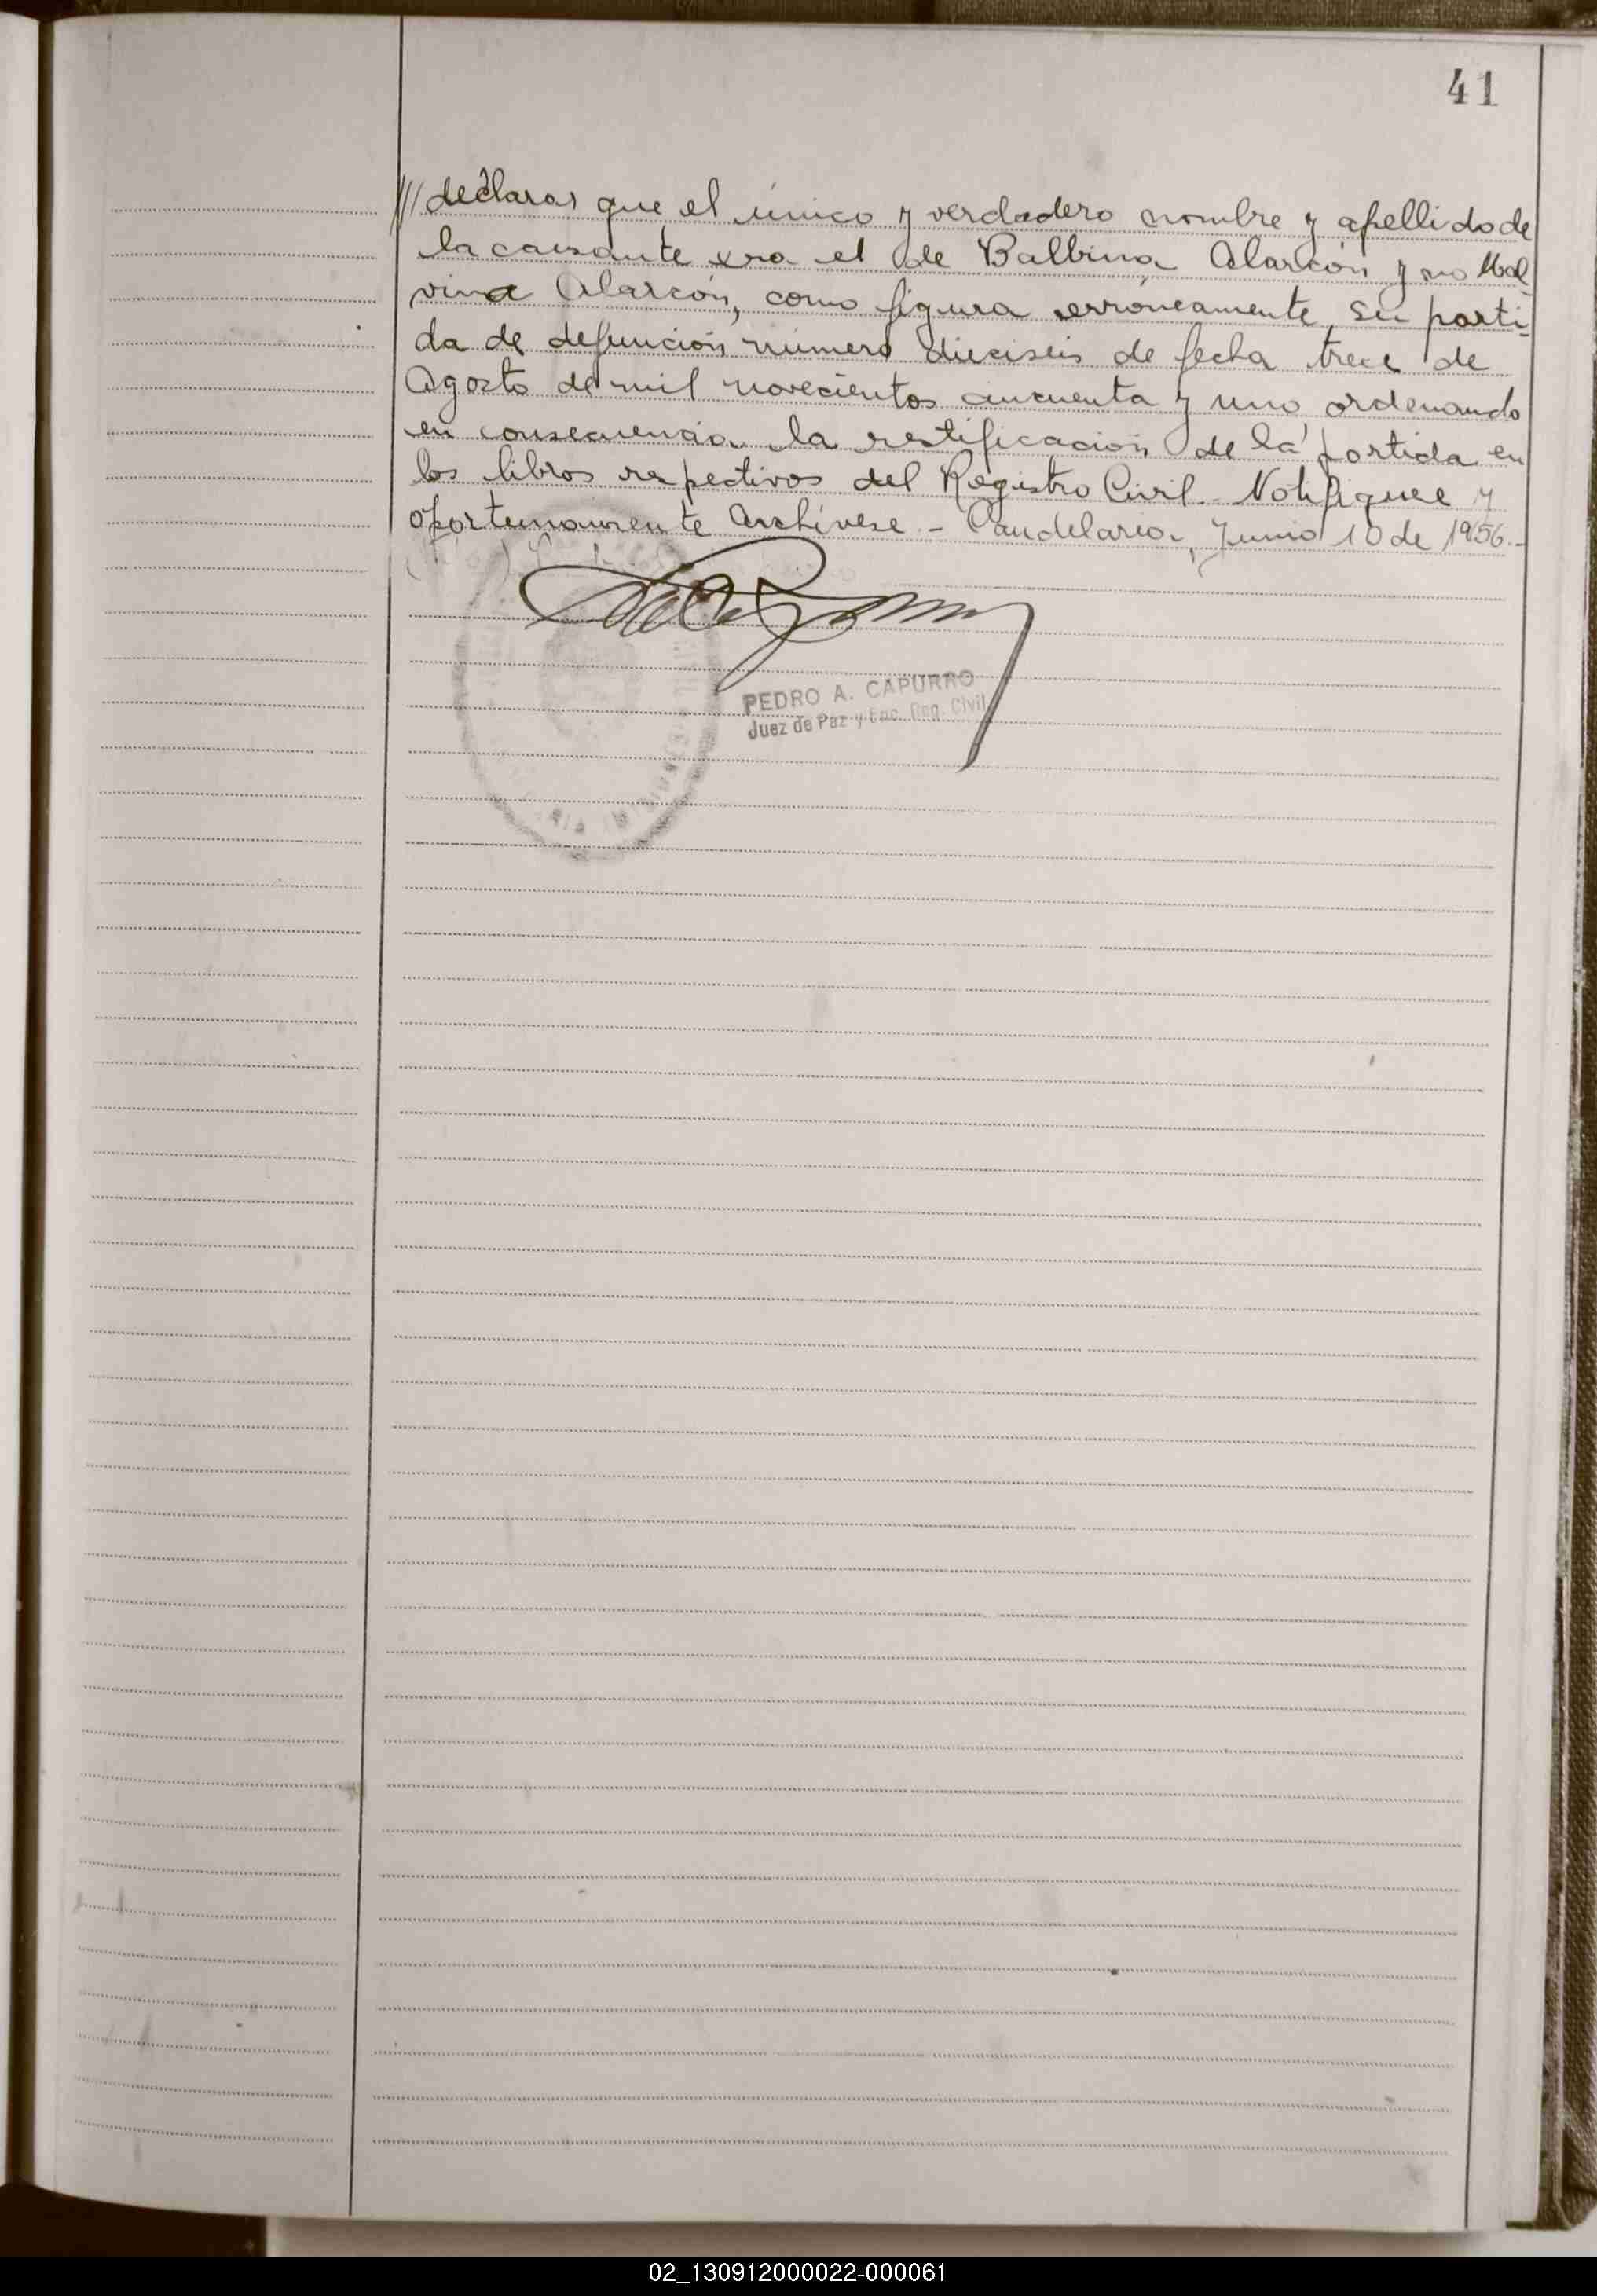 41
///declarar que el único y verdadero nombre y apellido de
la causante era el de Balbina Alarcón y no Mal
vina Alarcón, como figura erróneamente, su parti-
da de defunción número dieciseis de fecha trece de
Agosto de mil novecientos cincuenta y uno ordenando
en consecuencia la rectificación de la partida en
los libros respectivos del Registro Civil. Notifiquese y
oportunamente Archívese - Candelaria, Junio 10 de 1956.-
PEDRO A. CAPURRO
Juez de Paz y Enc. Reg. Civil
02_130912000022-000061